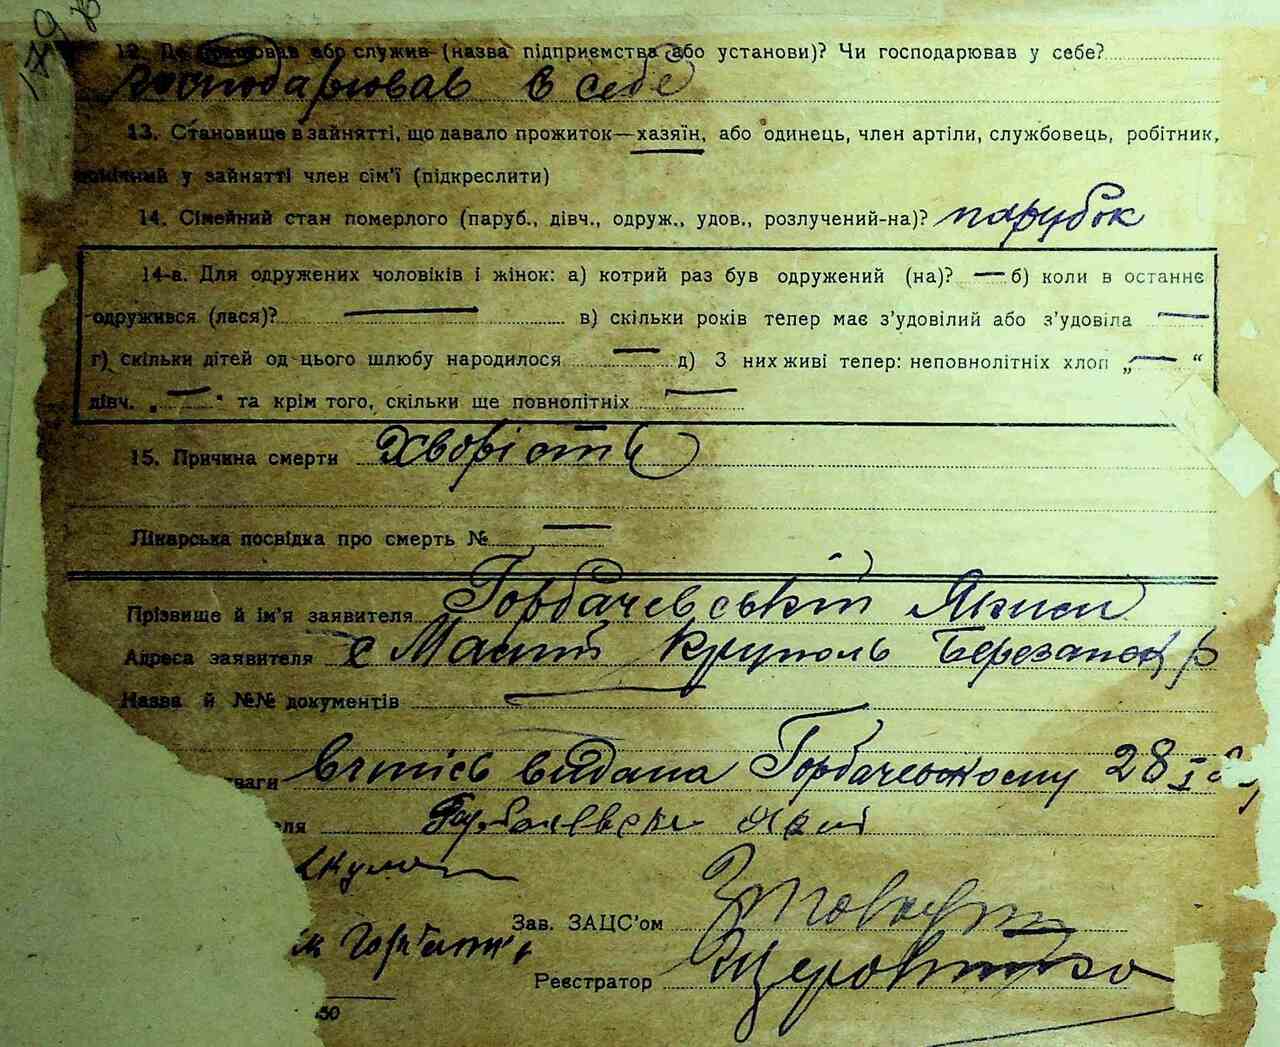 179
12. Де працював або служив (назва підприємства або установи)? Чи господарював у себе?
Господарював в себе
13. Становище в зайнятті, що давало прожиток—хазяїн, або одинець, член артіли, службовець, робітник,
помічний у зайнятті член сім'ї (підкреслити)
14. Сімейний стан померлого (паруб., дівч., одруж., удов., розлучений-на)? парубок
14-а. Для одружених чоловіків і жінок: а) котрий раз був одружений (на)? — б) коли в останнє
одружився (лася)? — в) скільки років тепер має з'удовілий або з'удовіла —
г) скільки дітей од цього шлюбу народилося — д) З них живі тепер: неповнолітніх хлоп „ — “
дівч. „ — “ та крім того, скільки ще повнолітніх —
15. Причина смерти Хворість
Лікарська посвідка про смерть № —
Прізвище й ім'я заявителя Горбачевський
Адреса заявителя с Малий Круполь Березанськ р
Назва й №№ документів —
ваги видана Горбачевському 28
ля
Зав. ЗАЦС'ом
Реєстратор
30